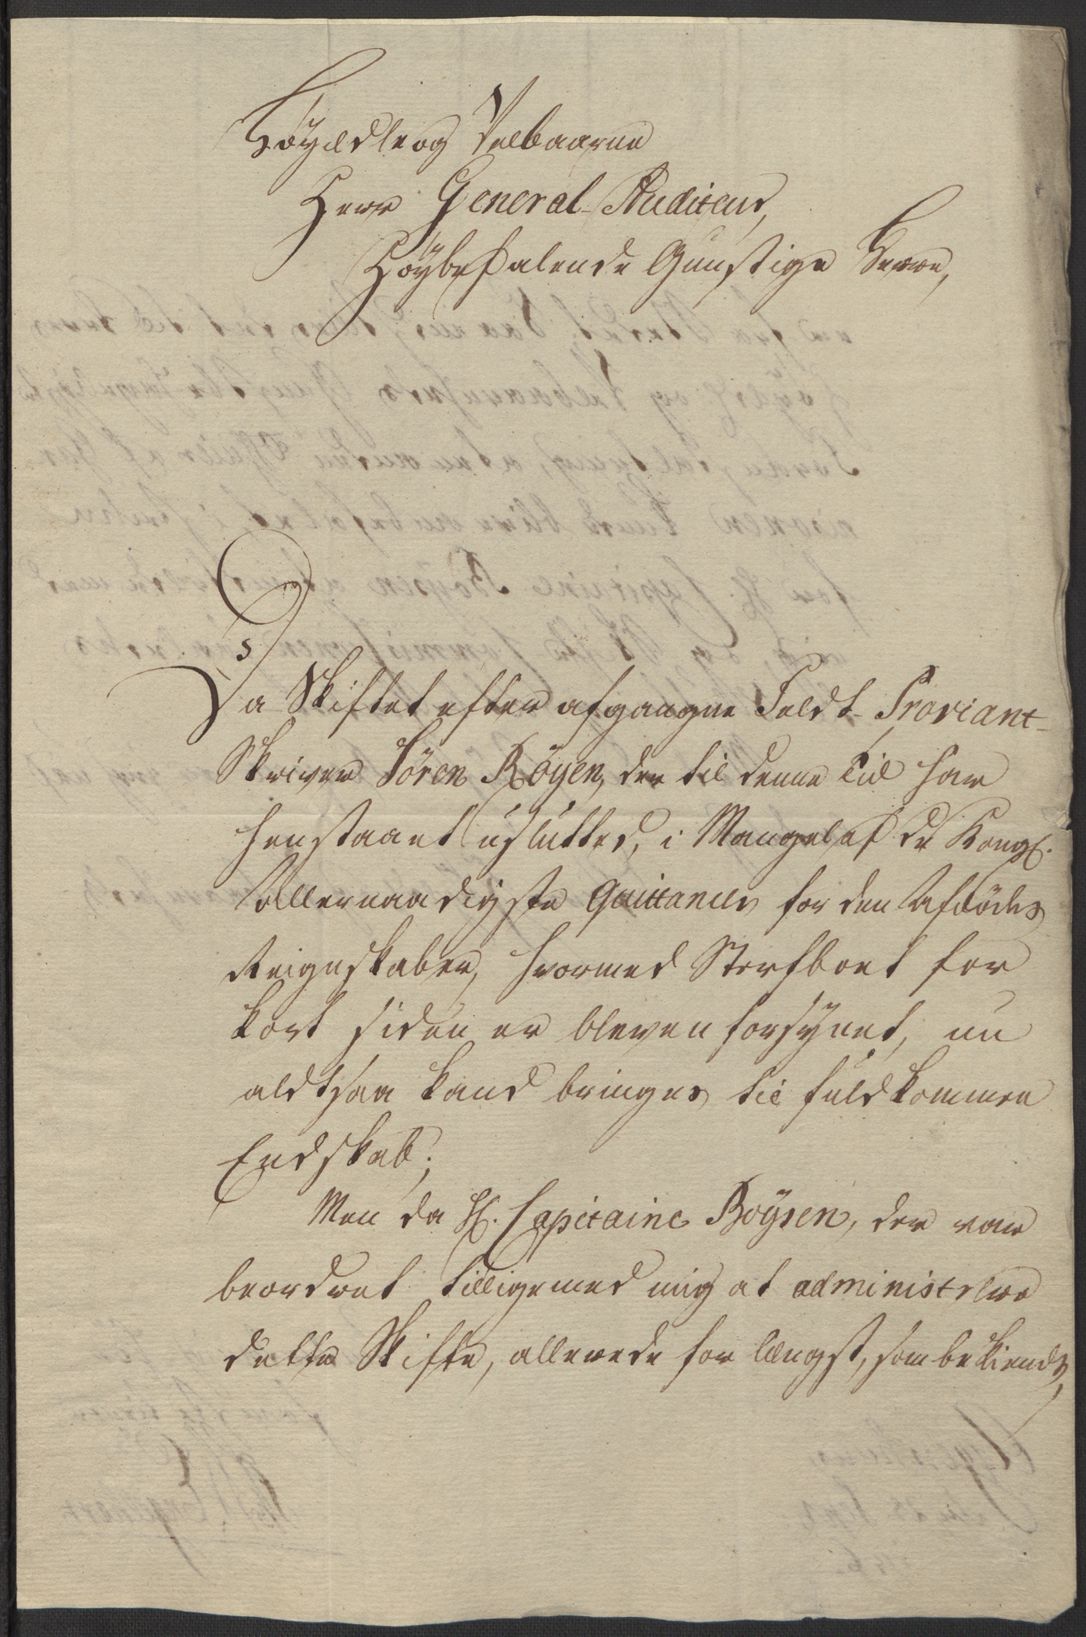 Höyædle og Velbaarne
Herr General-Auditeur,
Höybefalende Gunstige Herre,
Da Skiftet efter afgangne Feldt-Proviant-
Skriver Sören Röyen, der til denne Tid har
henstaaet usluttet, i Mangel af de Kongl.
allernaadigste Quittancer for den Afdödes
Reignskaber, hvormed Sterfboet for
kort siden er bleven forsynet, nu
aldtsaa kand bringes til fuldkommen
Endskab;
Men da H. Capitaine Boÿsen, der var
beordret tilligemed mig at administrere
dette Skifte, allerede for længst, som bekiendt,